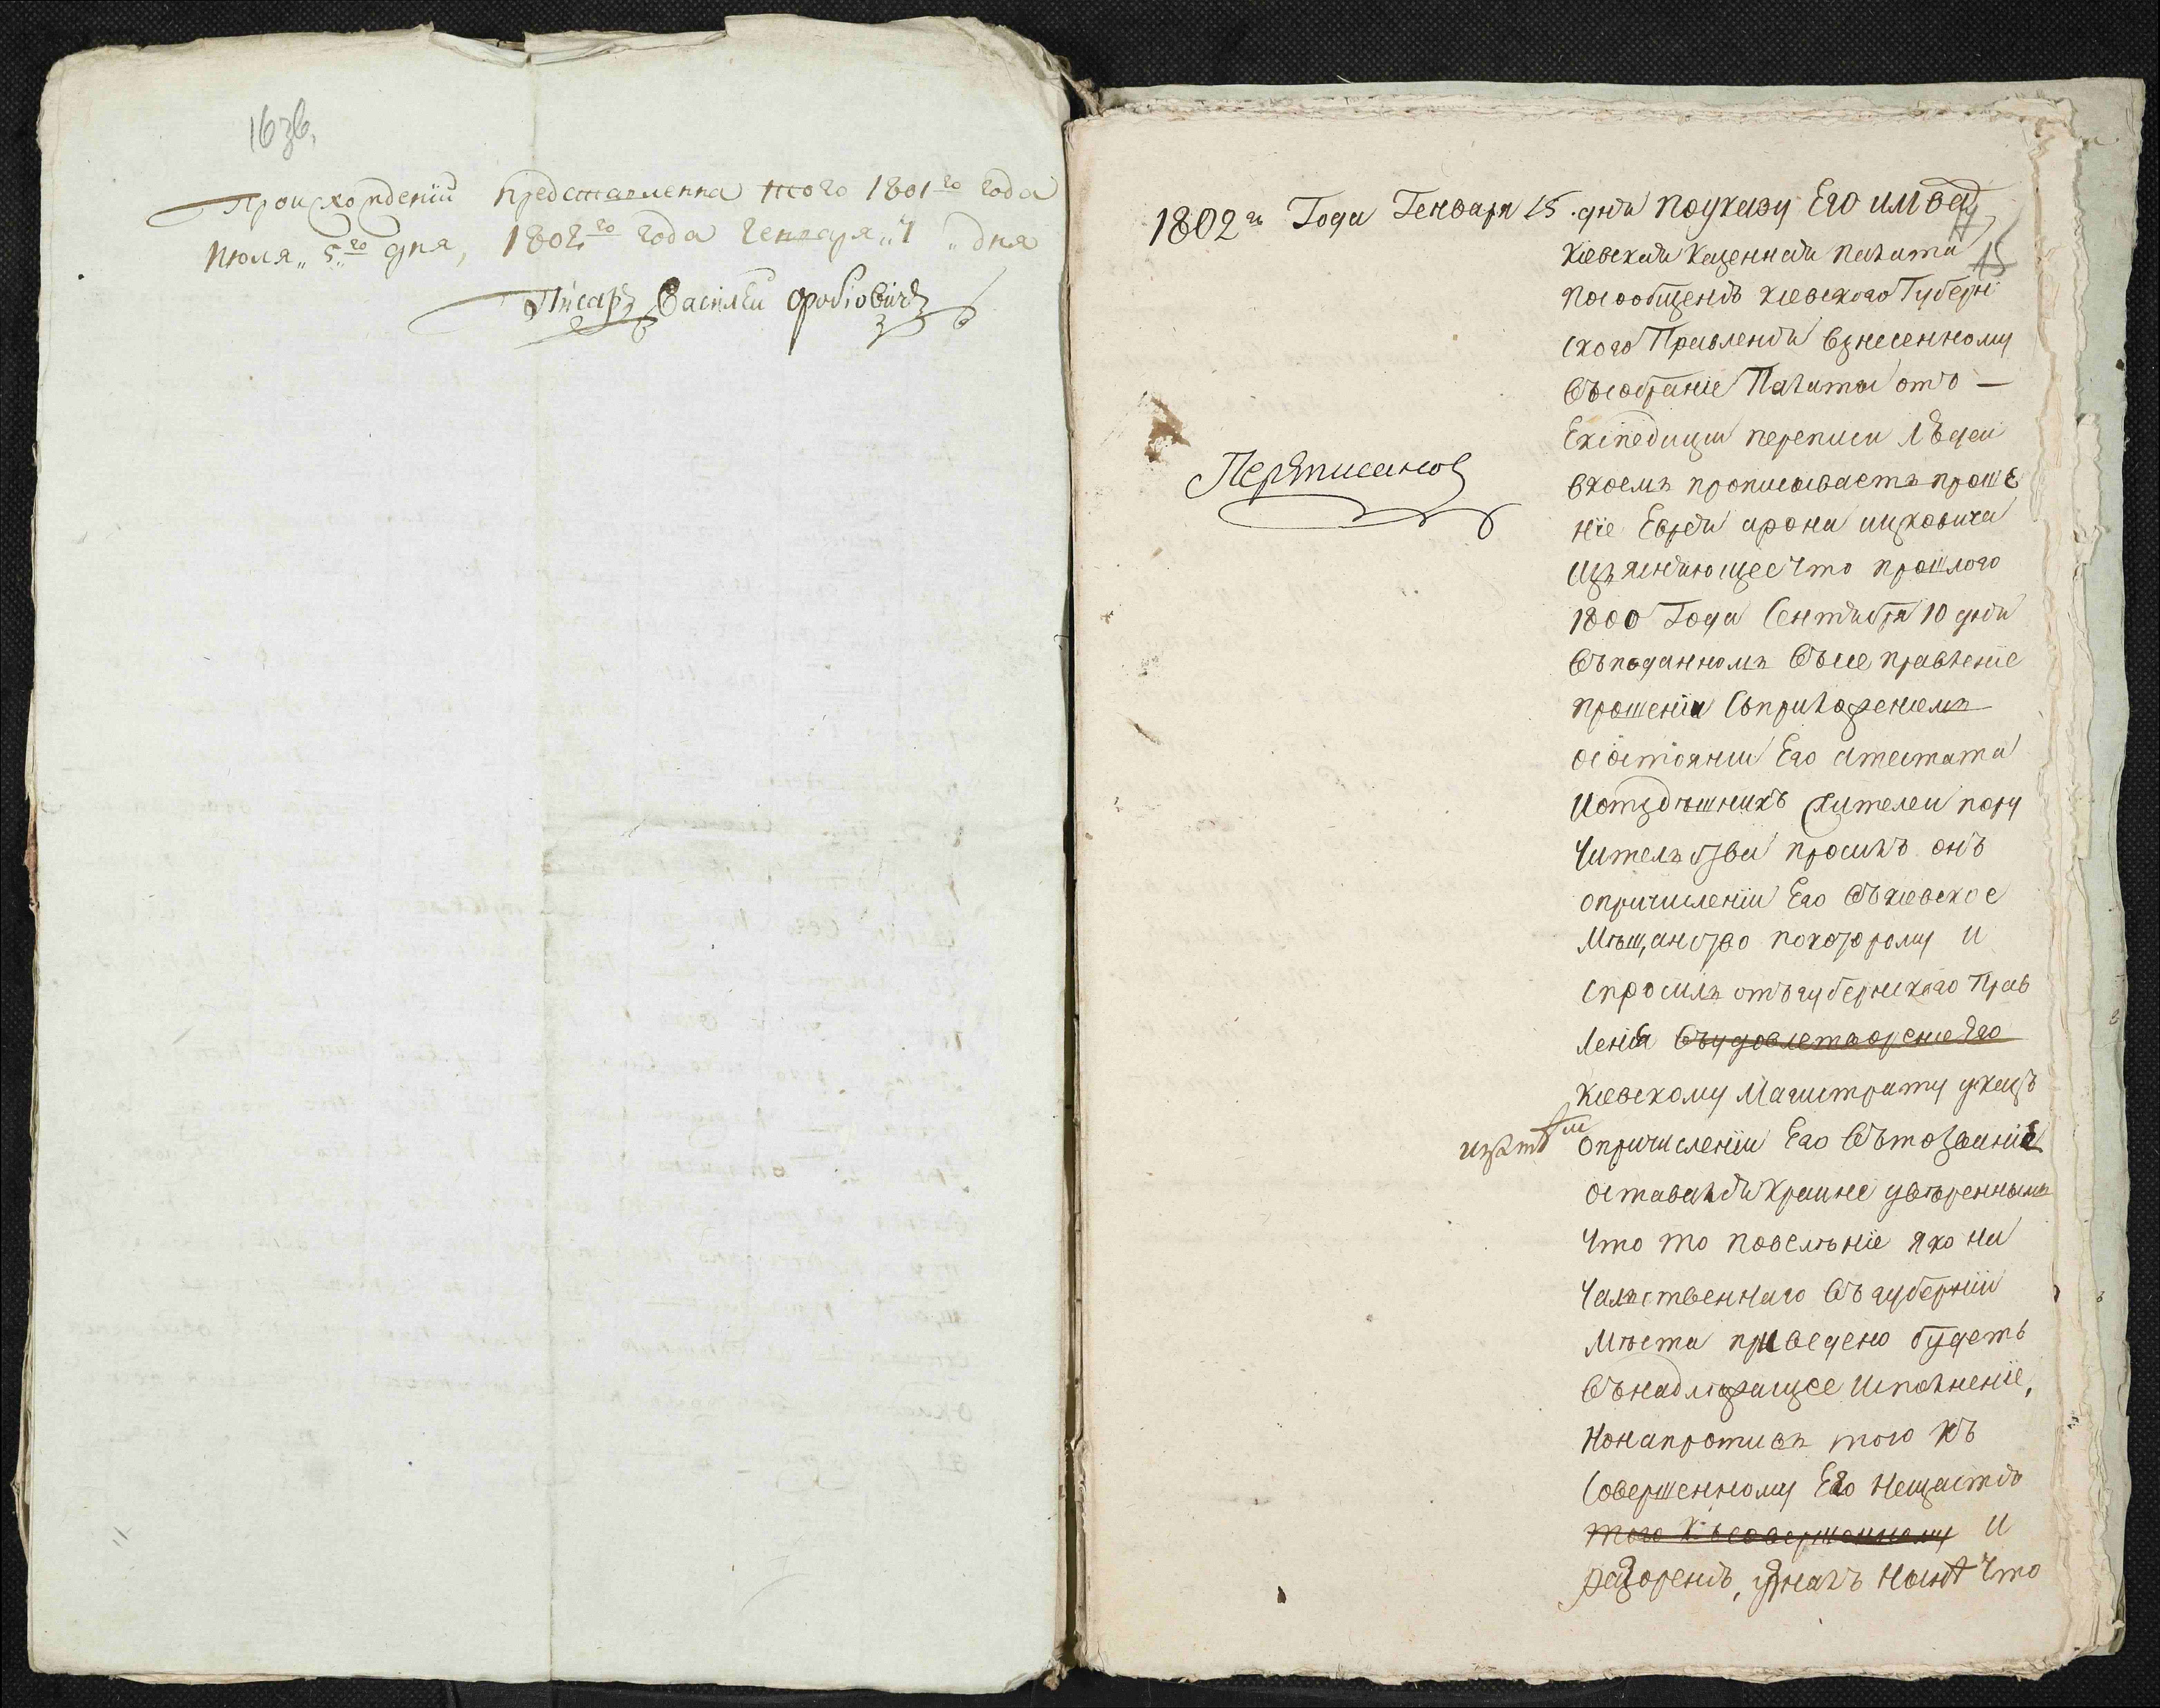 16зв.
Происхождений представленна того 1801го года
Июля „5„го дня, 1802го года Генваря „7„ дня
Писарь Василей
1802го Года Генваря 15 дня По указу Его
15
Киевская Казенная Палата
По сообщению Киевского Губерн
ского Правления взнесенному
въ собрание Палаты отъ —
Експедиции переписи людей
в коемъ прописываетъ проше
ніе Еврея арона ицковича
изъясняющее что прошлого
1800 Года Сентября 10 дня
въ поданномъ въ сие правленіе
прошеніи съ приложениемъ
о состоянии Его атестата
и от здѣшнихъ жителеи пору
чительства просилъ онъ
о причислении Его въ киевское
мѣщанство по которому и
спросилъ отъ губернского Прав
ления въ удовлетворение Его
Киевскому Магистрату указъ
о причислении Его въ то званіе
оставался крайне увѣреннымъ
что то повелѣніе яко на
чальственнаго въ губерніи
мѣста приведено будетъ
въ надлежащее исполненіе,
но напротивъ того къ
совершенному Его нещастю
того къ совершенному и
разорению, узналъ нынѣ что